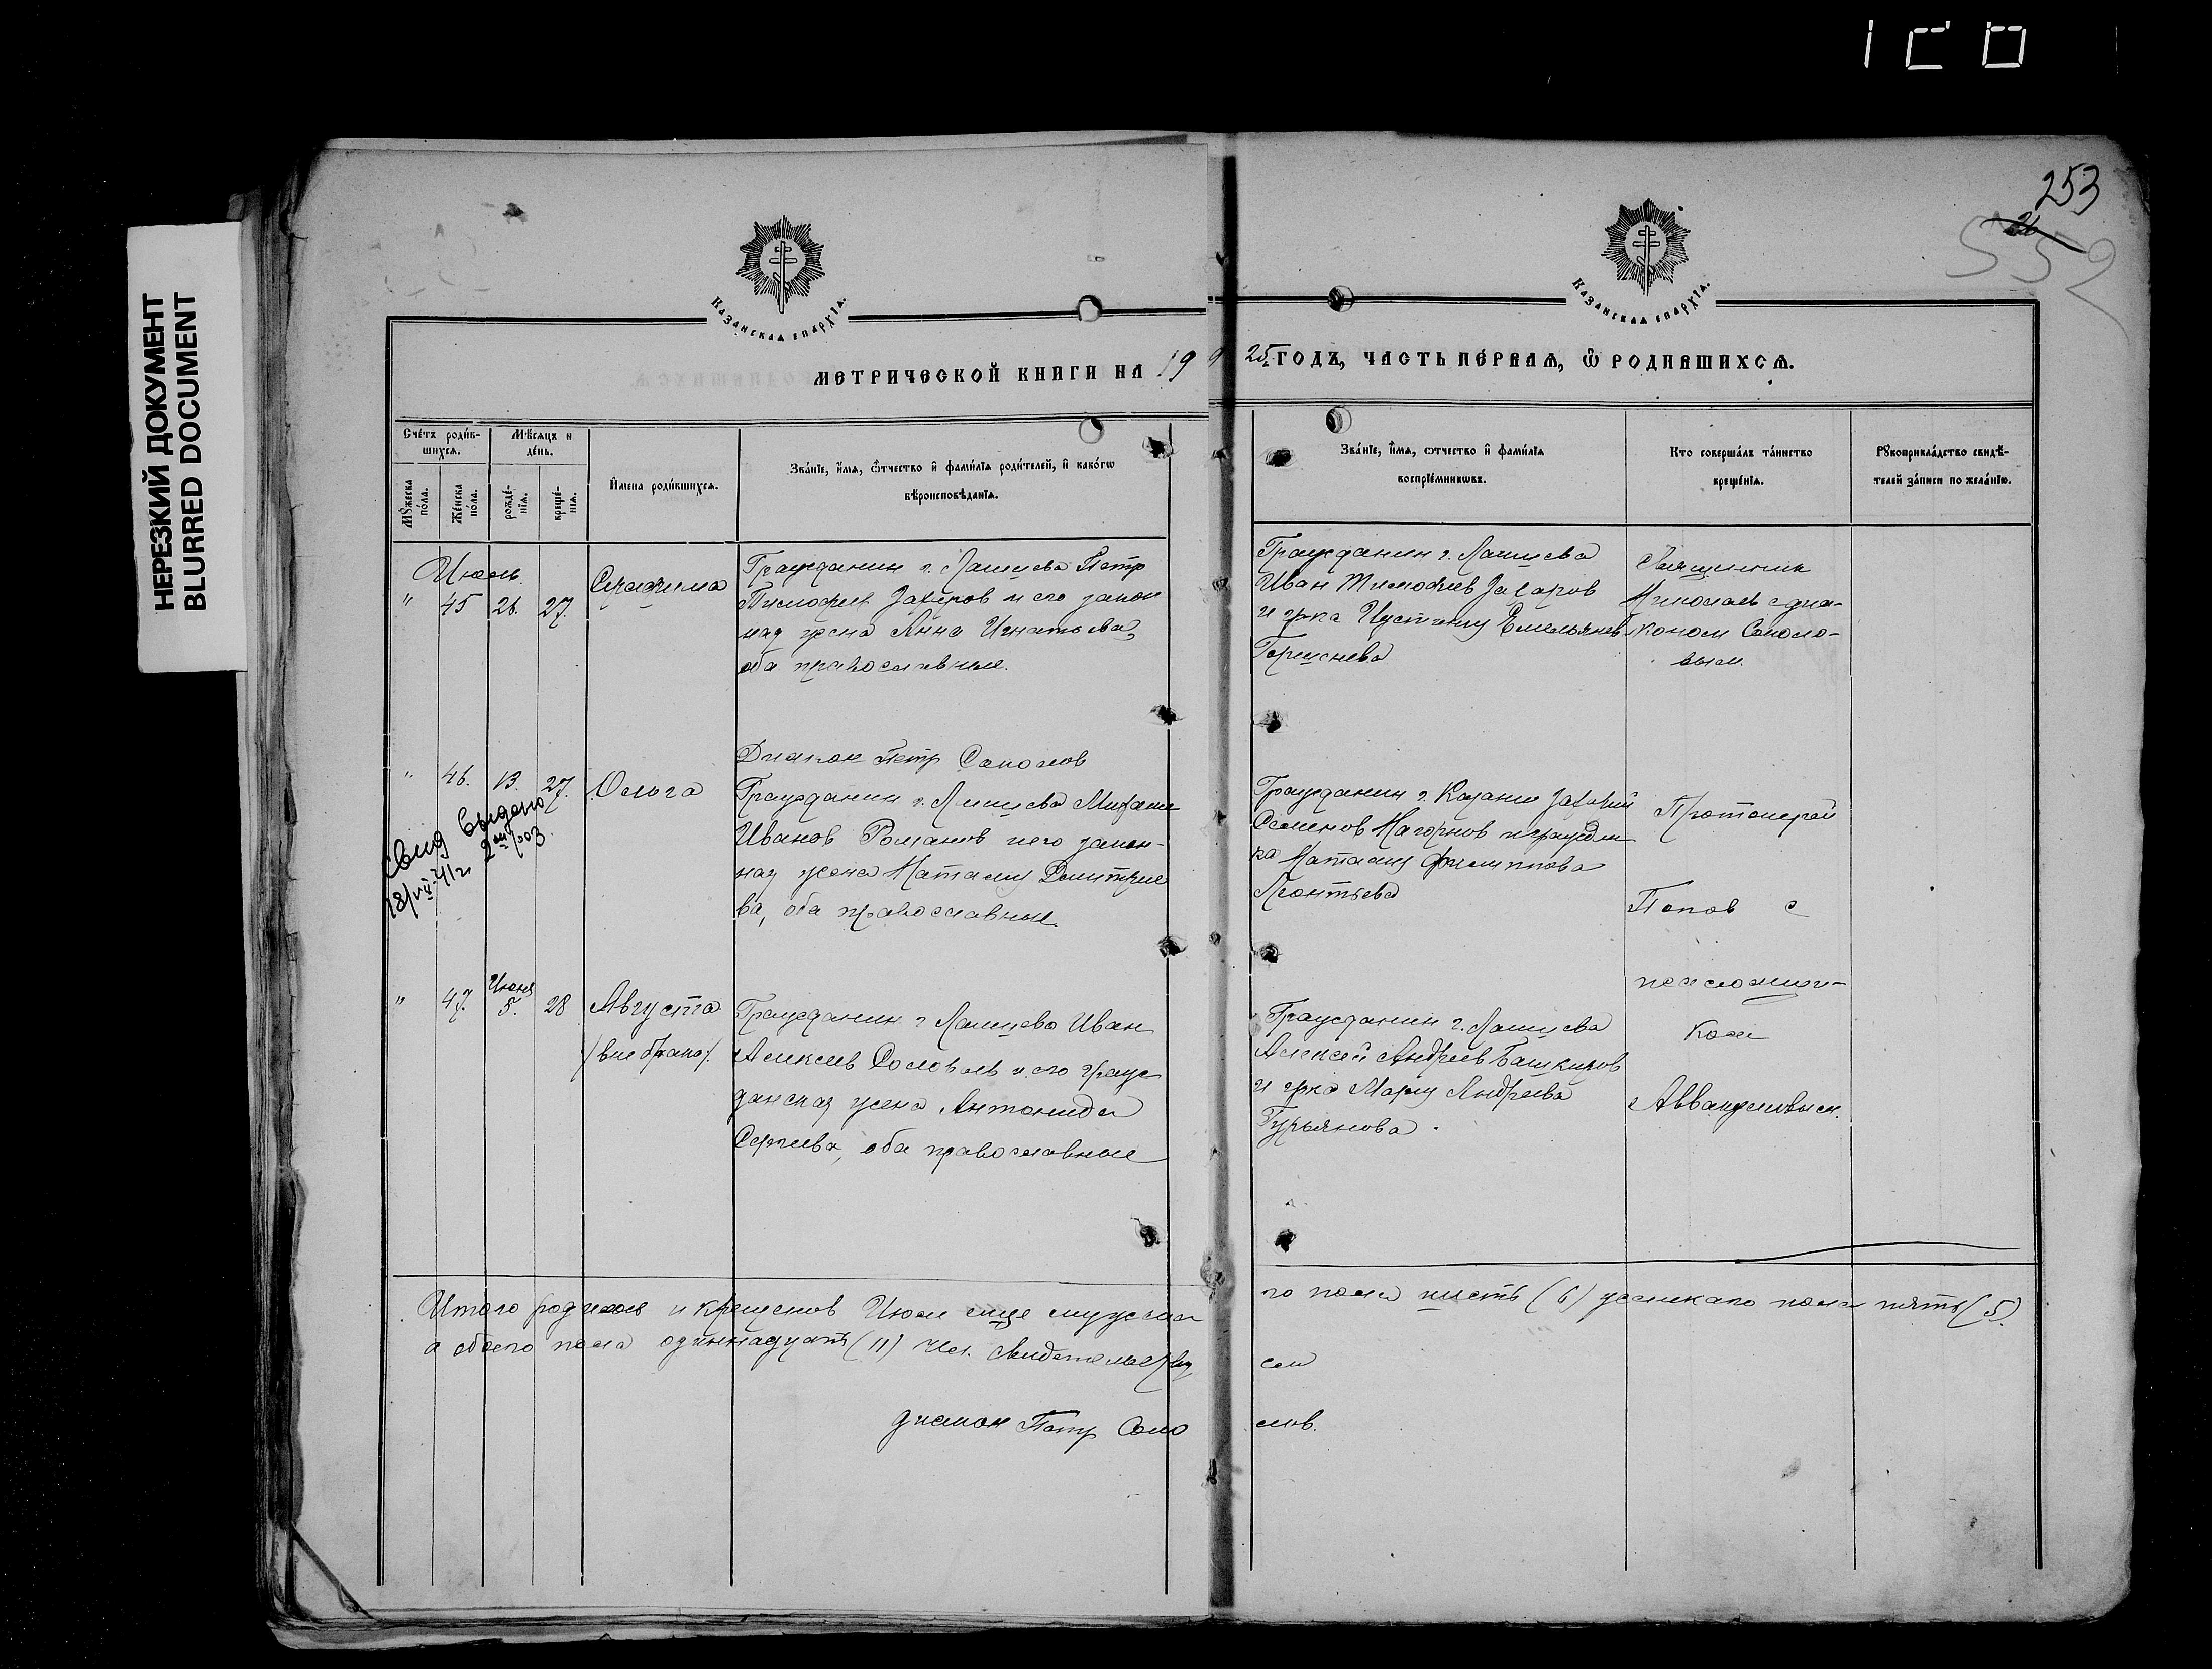 НЕРЕЗКИЙ ДОКУМЕНТ
BLURRED DOCUMENT
253
26
552
Казанская епархїѧ.
Казанская епархїѧ.
МЕТРИЧЕСКОЙ КНИГИ НА 19
25 ГОДЪ, ЧАСТЬ ПЕ́РВАЯ, Ѽ РОДИВШИХСѦ.
Сче́тъ роди́в-
шихсѧ.
Мꙋ́жеска по́ла.
Же́нска по́ла.
Мѣ́сѧцъ и де́нь.
рожде́-
нїѧ.
креще́-
нїѧ.
И҆мена роди́вшихсѧ.
Зва́нїе, и҆́мѧ, ѻ҆́тчество и҆ фами́лїѧ роди́телей, и҆ како́гѡ
вѣроисповѣ́данїѧ.
Зва́нїе, и҆́мѧ, ѻ҆тчество и҆ фами́лїѧ
воспрїе́мникѡвъ.
Кто соверша́лъ та́инство
креще́нїѧ.
Рꙋкоприкла́дство свидѣ́-
телей за́писи по жела́нїю.
Июль.
" 45 26. 27.
Серафима
Гражданин г. Лаишева Петр
Тимофеев Захаров и его закон
ная жена Анна Игнатьева,
оба православные.
Гражданин г. Лаишева
Иван Тимофеев Захаров
и гр-ка Иустания Емельянов
Горшенева
Священник
Николаев с диа-
коном Соколо-
вым.
Диакон Петр Соколов
" 46. 13. 27.
Ольга
Гражданин г. Лаишева Михаил
Иванов Романов и его закон-
ная жена Наталия Димитрие
ва, оба православные.
Свид выдано
18/VII 41 г. 2
Гражданин г. Казани
Семенов Нагорнов и граждан
ка Наталия Филиппова
Леонтьева
Протоиерей
Попов с
псаломщи-
ком
" 47. Июня 5. 28
Августа
/вне брака/.
Гражданин г Лаишева Иван
Алексеев Соловьев и его граж
данская жена Антонида
Сергеева, оба православные
Гражданин г. Лаишева
Алексей Андреев Башкиров
и гр-ка Мария Андреева
Гурьянова.
Итого родилось и крещенов Июле м-це мужска
го пола шесть (6) женскаго пола пять (5)
а обоего пола одиннадцать (11) чел.
сем
диакон Петр Соко
лов.